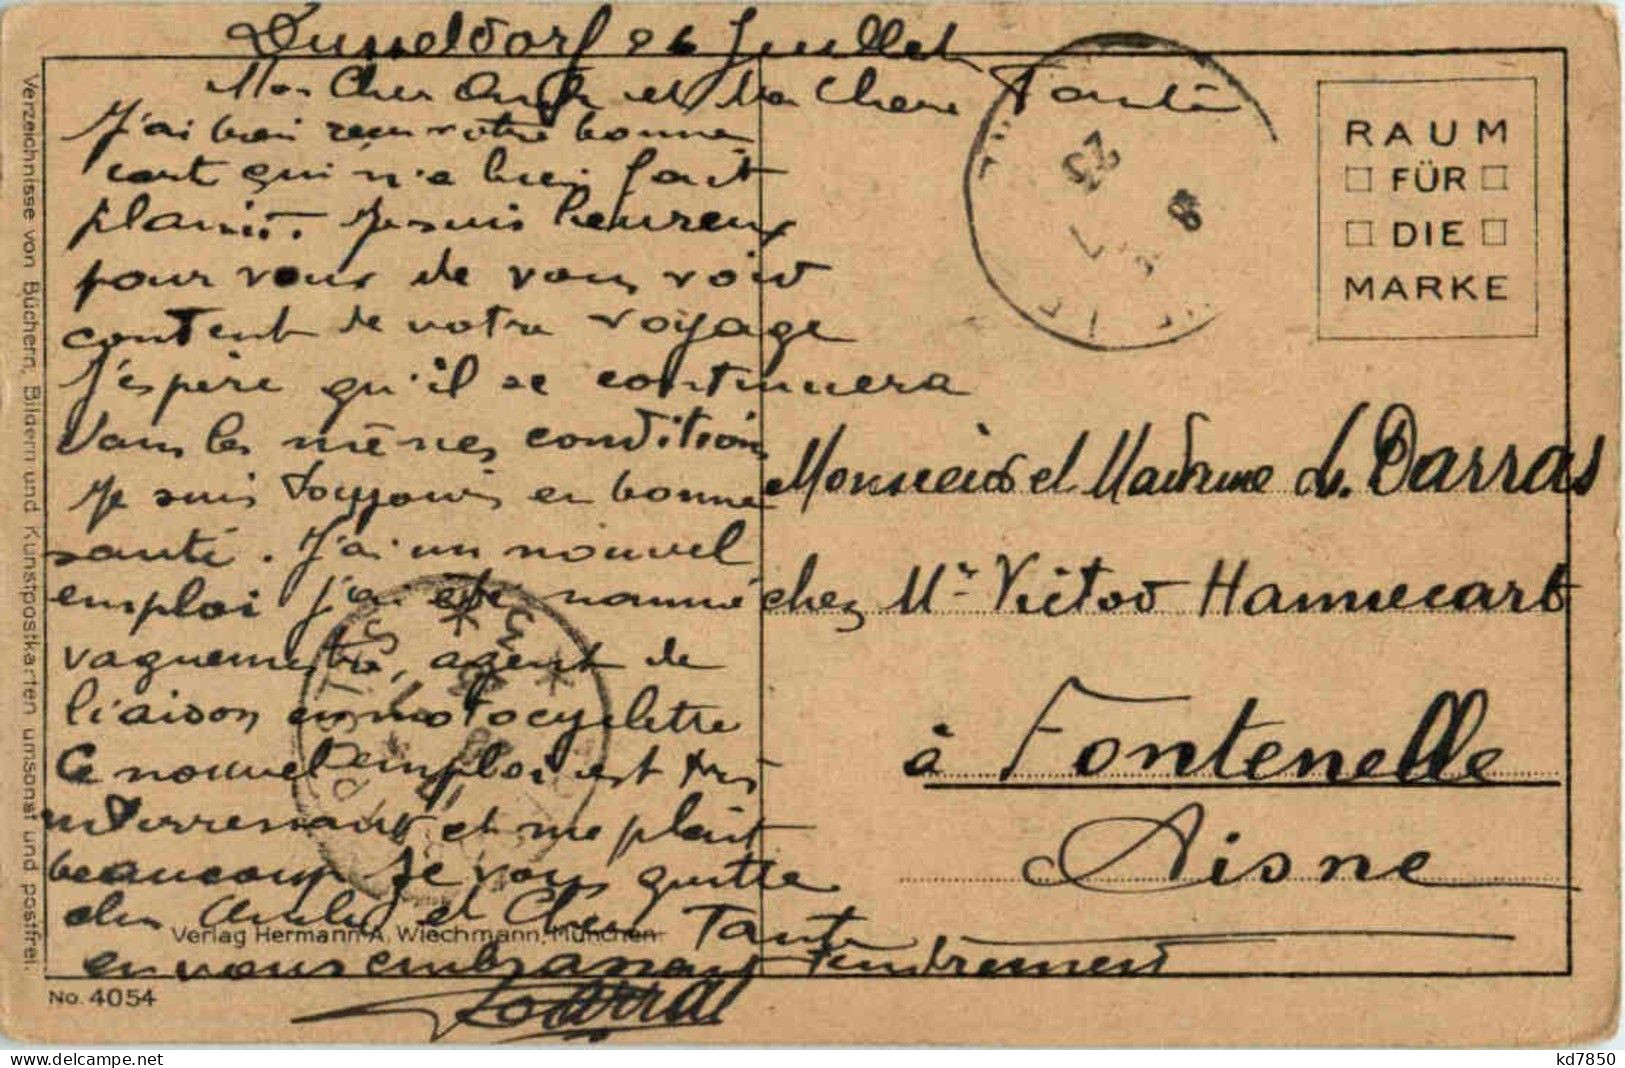 Dusseldorf 26 Juillet
Mon Cher Oncle et Ma Chere Tante
J'ai bien recu votre bonne
carte qui m'a bien fait
plaisir. Je suis heureux
pour vous de vous voir
content de votre voyage
J'espère qu'il se continuera
dans les mêmes conditions
Je suis toujours en bonne
santé. J'ai un nouvel
emploi j'ai été nommé
vaguemestre, agent de
liaison en motocyclette
Ce nouvel emploi est très
interressant et me plait
beaucoup Je vous quitte
cher Oncle et Chere Tante
en vous embrassant tendrement
Darras
Monsieur et Madame L. Darras
chez Mr Victor Hannecart
à Fontenelle
Aisne
RAUM
FÜR
DIE
MARKE
23
7
8
Verzeichnisse von Büchern, Bildern und Kunstpostkarten umsonst und postfrei.
Verlag Hermann A. Wiechmann, München
No. 4054
kd7850